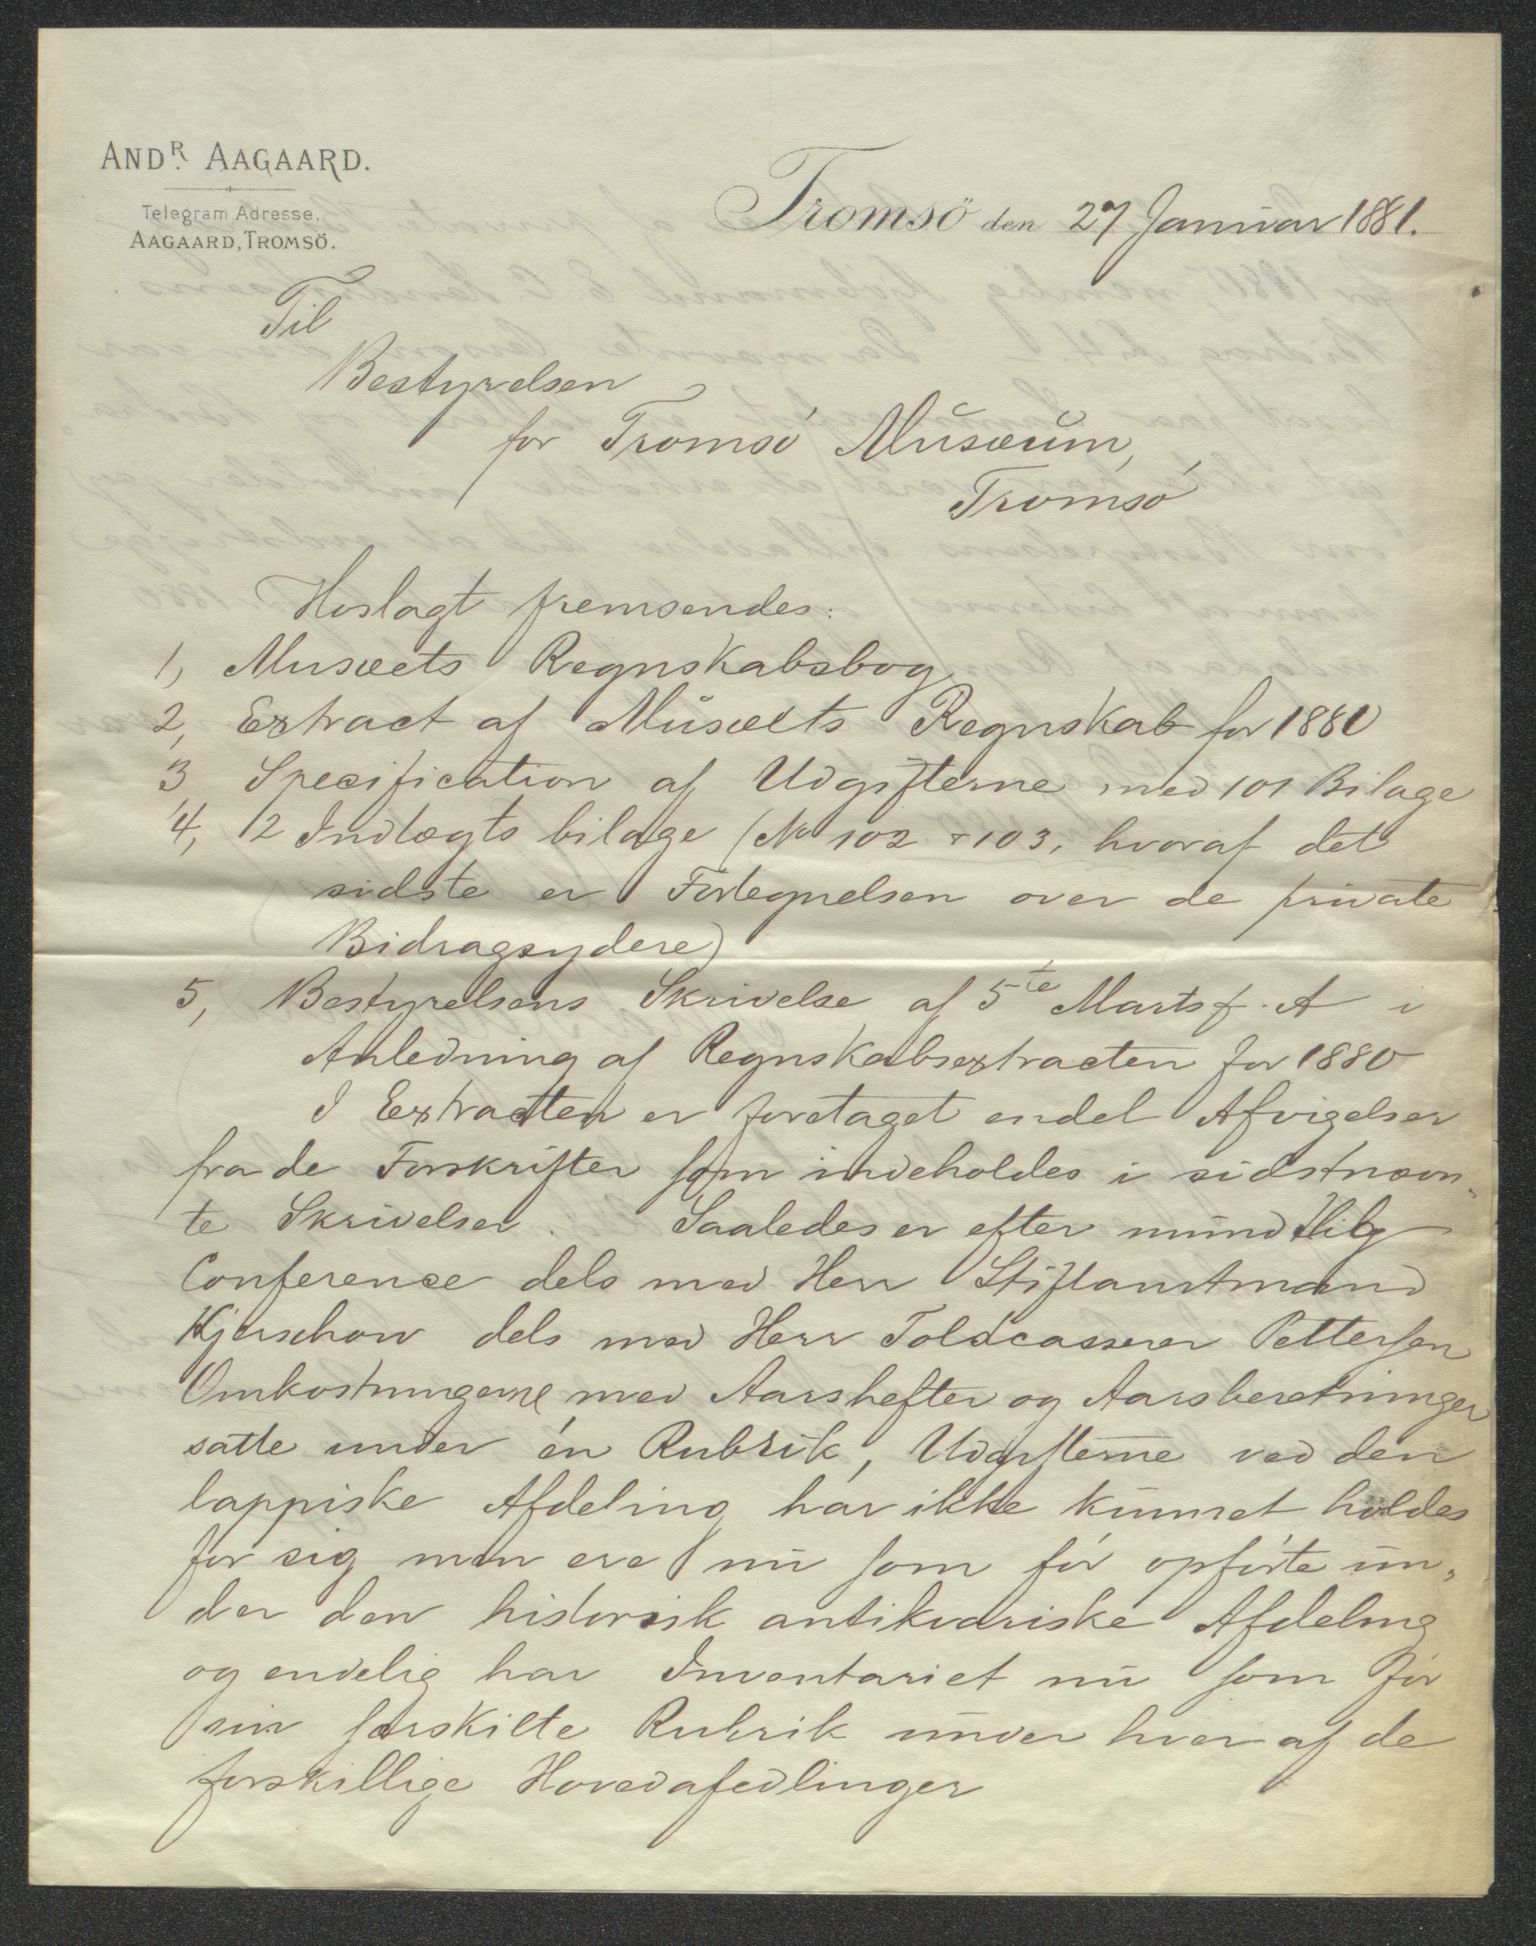 AND.R AAGAARD.
Telegram Adresse,
AAGAARD, TROMSÖ.
Tromsö den 27 Januar 1881.
Til
Bestyrelsen
for Tromsö Musæum,
Tromsö
Hoslagt fremsendes:
1, Musæets Regnskabsbog
2, Extract af Musæets Regnskab for 1880
3 Specification af Udgifterne med 101 Bilage
4, 2 Indtægts bilage (No 102 & 103, hvoraf det
sidste er Fortegnelsen over de private
Bidragsydere)
5, Bestyrelsens Skrivelse af 5te Marts f. A i
Anledning af Regnskabsextracten for 1880
I Extracten er foretaget endel Afvigelser
fra de Forskrifter som indeholdes i sidstnævn„
te Skrivelser. Saaledes er efter mundtlig
Conference dels med Herr Stiftamtmand
Kjerschow dels med Herr Toldcasserer Pettersen
Omkostningerne med Aarshefter og Aarsberetninger
satte under én Rubrik, Udgifterne ved den
lappiske Afdeling har ikke kunnet holdes
for sig men ere nu som för opförte un„
der den historisk antikvariske Afdeling
og endelig har Inventariet nu som för
sin særskilte Rubrik under hver af de
forskillige Hovedafedlinger